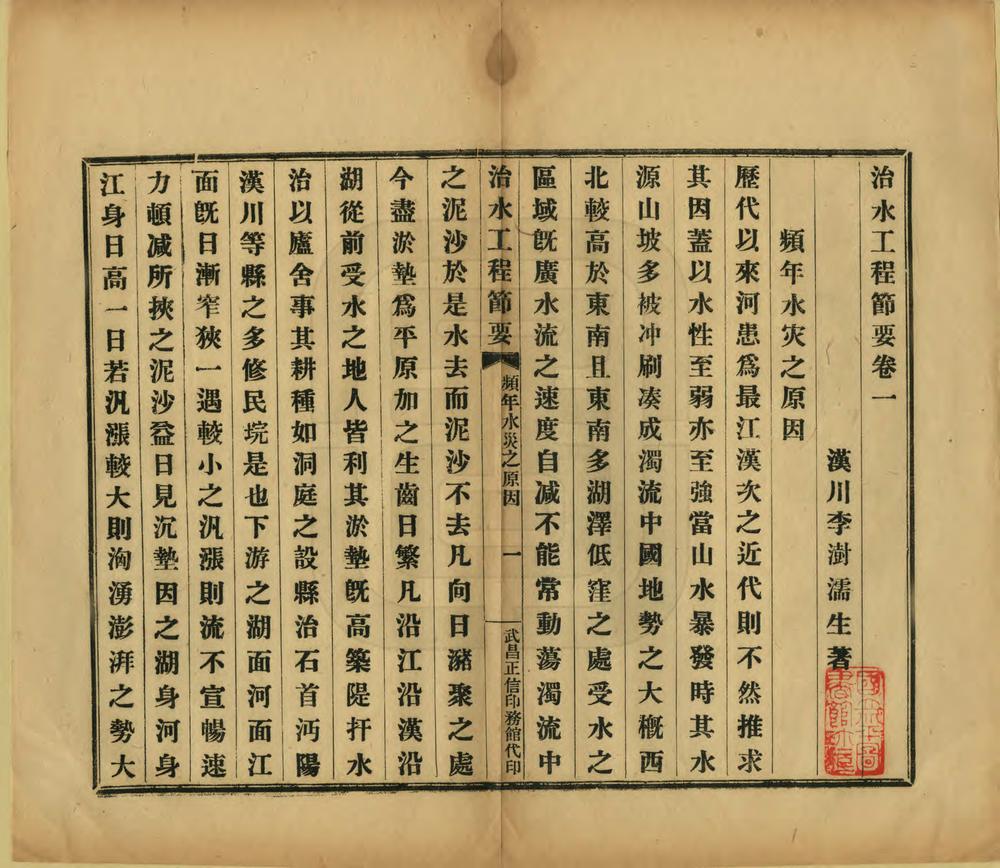 治水工程節要卷一
漢川李澍濡生著
頻年水灾之原因
歷代以來河患爲最江漢次之近代則不然推求
其因蓋以水性至弱亦至強當山水暴發時其水
源山坡多被冲刷凑成濁流中國地勢之大槪西
北較高於東南且東南多湖澤低窪之處受水之
區域旣廣水流之速度自減不能常動蕩濁流中
治水工程節要
頻年水災之原因
一
武昌正信印務館代印
之泥沙於是水去而泥沙不去凡向日瀦聚之處
今盡淤墊爲平原加之生齒日繁凡沿江沿漢沿
湖從前受水之地人皆利其淤墊旣高築隄扞水
治以廬舍事其耕種如洞庭之設縣治石首沔陽
漢川等縣之多修民垸是也下游之湖面河面江
面旣日漸窄狹一遇較小之汎漲則流不宣暢速
力頓减所挾之泥沙益日見沉墊因之湖身河身
江身日高一日若汎漲較大則洶湧澎湃之勢大